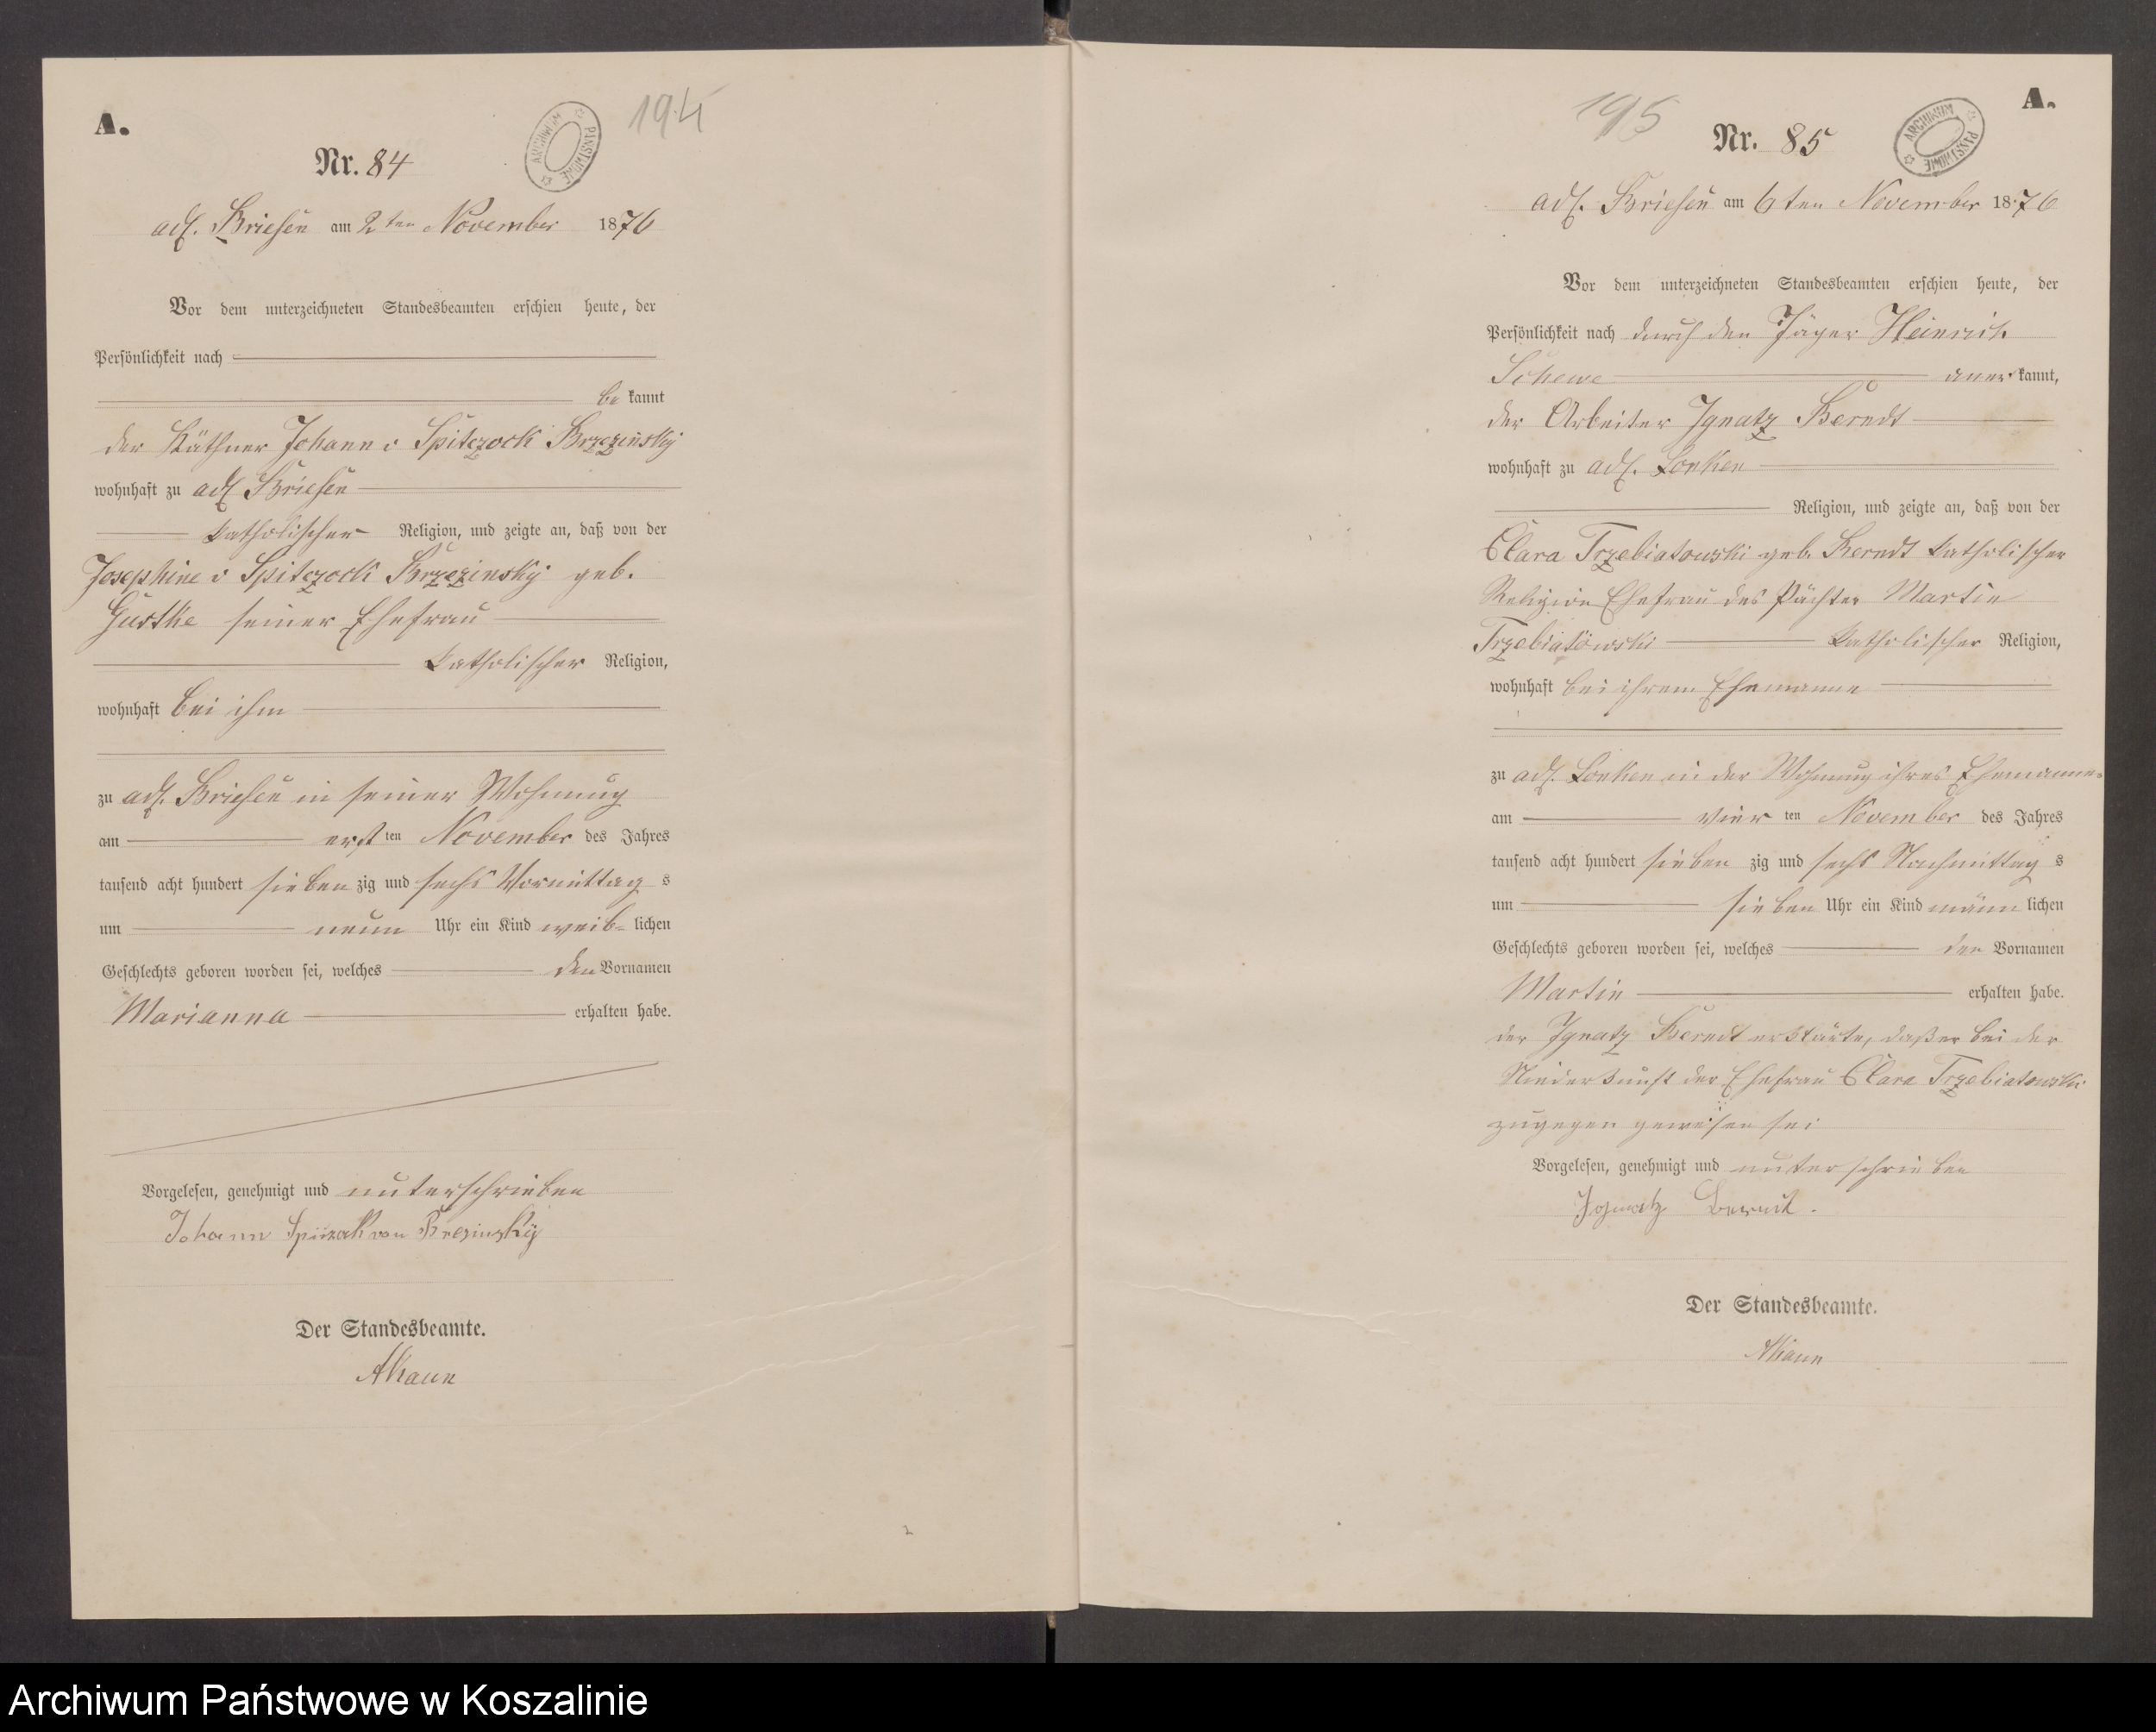 A.
194
ARCHIWUM PAŃSTWOWE
Nr. 84
adl. Briesen am 2ten November 1876
Vor dem unterzeichneten Standesbeamten erschien heute, der
Persönlichkeit nach
be kannt
der Käthner Johann v Spitczock Brzezinsky
wohnhaft zu adl Briesen
katholischer Religion, und zeigte an, daß von der
Josephine v Spitczock Brzezinsky geb.
Gustke seiner Ehefrau
katholischer Religion,
wohnhaft bei ihm
zu adl. Briesen in seiner Wohnung
am ersten November des Jahres
tausend acht hundert sieben zig und sechs Vormittag s
um neun Uhr ein Kind weib= lichen
Geschlechts geboren worden sei, welches den Vornamen
Marianna erhalten habe.
Vorgelesen, genehmigt und unterschrieben
Johann von
Der Standesbeamte.
195
A.
ARCHIWUM PAŃSTWOWE
Nr. 85
adl. Briesen am 6ten November 1876
Vor dem unterzeichneten Standesbeamten erschien heute, der
Persönlichkeit nach durch den Jäger Heinrich
Schewe aner kannt,
der Arbeiter Ignatz Berndt
wohnhaft zu adl. Lonken
Religion, und zeigte an, daß von der
Clara Trzebiatowski geb. Berndt katholischer
Religion Ehefrau des Pächter Martin
Trzebiatowski katholischer Religion,
wohnhaft bei ihrem Ehemanne
zu adl. Lonken in der Wohnung ihres Ehemannes
am vier ten November des Jahres
tausend acht hundert sieben zig und sechs Nachmittag s
um sieben Uhr ein Kind männ lichen
Geschlechts geboren worden sei, welches den Vornamen
Martin erhalten habe.
der Ignatz Berndt erklärte, daß er bei der
Niederkunft der Ehefrau Clara Trzebiatowski
zugegen gewesen sei
Vorgelesen, genehmigt und unterschrieben
Ignatz Berndt.
Der Standesbeamte.
Archiwum Państwowe w Koszalinie